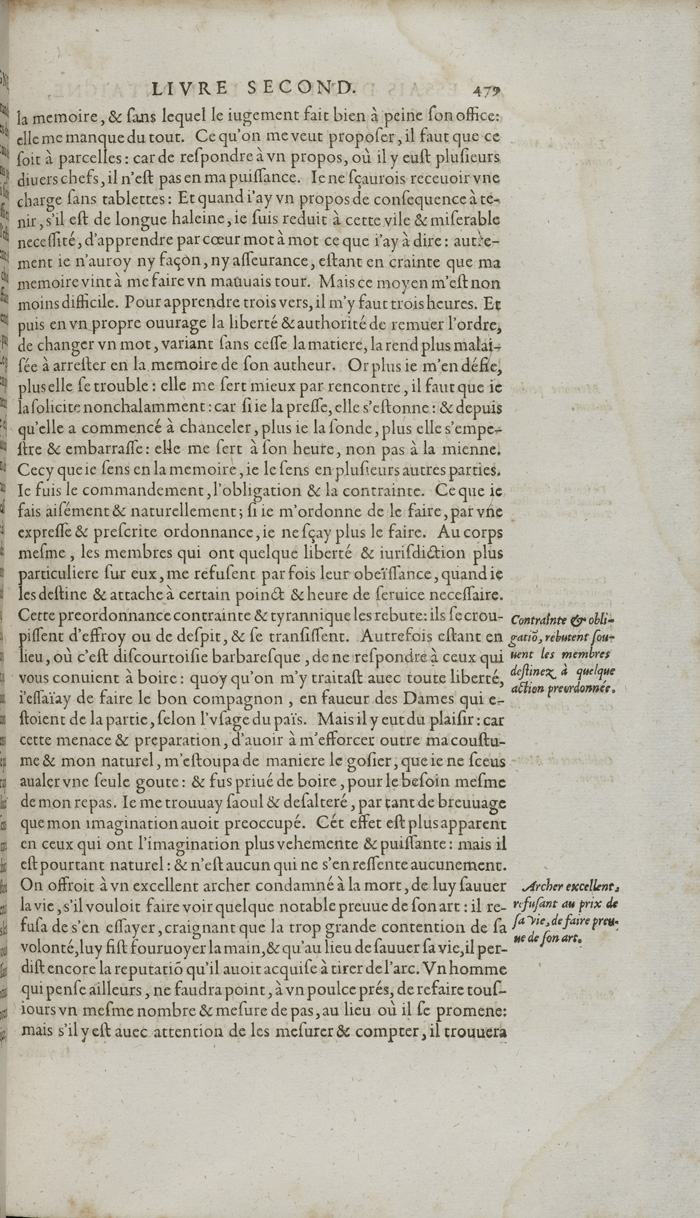 LIVRE SECOND. 479
la memoire, & ſans lequel le iugement fait bien à peine ſon office:
elle me manque du tout. Ce qu'on me veut propoſer, il faut que ce
ſoit à parcelles: car de reſpondre à vn propos, où il y euſt pluſieurs
diuers chefs, il n'eſt pas en ma puiſſance. Ie ne ſçaurois receuoir vne
charge ſans tablettes: Et quand i'ay vn propos de conſequence à te-
nir, s'il eſt de longue haleine, ie ſuis reduit à cette vile & miſerable
neceſſité, d'apprendre par cœur mot à mot ce que i'ay à dire: autre-
ment ie n'auroy ny façon, ny aſſeurance, eſtant en crainte que ma
memoire vint à me faire vn mauuais tour. Mais ce moyen m'eſt non
moins difficile. Pour apprendre trois vers, il m'y faut trois heures. Et
puis en vn propre ouurage la liberté & authorité de remuer l'ordre,
de changer vn mot, variant ſans ceſſe la matiere, la rend plus malai-
ſée à arreſter en la memoire de ſon autheur. Or plus ie m'en défie,
plus elle ſe trouble: elle me ſert mieux par rencontre, il faut que ie
la ſolicite nonchalamment: car ſi ie la preſſe, elle s'eſtonne: & depuis
qu'elle a commencé à chanceler, plus ie la ſonde, plus elle s'empe-
ſtre & embarraſſe: elle me ſert à ſon heure, non pas à la mienne.
Cecy que ie ſens en la memoire, ie le ſens en pluſieurs autres parties.
Ie fuis le commandement, l'obligation & la contrainte. Ce que ie
fais aiſément & naturellement; ſi ie m'ordonne de le faire, par vne
expreſſe & preſcrite ordonnance, ie ne ſçay plus le faire. Au corps
meſme, les membres qui ont quelque liberté & iuriſdiction plus
particuliere ſur eux, me refuſent par fois leur obeïſſance, quand ie
les deſtine & attache à certain poinct & heure de ſeruice neceſſaire.
Cette preordonnance contrainte & tyrannique les rebute: ils ſe crou-
piſſent d'effroy ou de deſpit, & ſe tranſiſſent. Autrefois eſtant en
lieu, où c'eſt diſcourtoiſie barbareſque, de ne reſpondre à ceux qui
vous conuient à boire: quoy qu'on m'y traitaſt auec toute liberté,
i'eſſaïay de faire le bon compagnon, en faueur des Dames qui e-
ſtoient de la partie, ſelon l'vſage du païs. Mais il y eut du plaiſir: car
cette menace & preparation, d'auoir à m'efforcer outre ma couſtu-
me & mon naturel, m'eſtoupa de maniere le goſier, que ie ne ſceus
aualer vne ſeule goute: & fus priué de boire, pour le beſoin meſme
de mon repas. Ie me trouuay ſaoul & deſalteré, par tant de breuuage
que mon imagination auoit preoccupé. Cét effet eſt plus apparent
en ceux qui ont l'imagination plus vehemente & puiſſante: mais il
eſt pourtant naturel: & n'eſt aucun qui ne s'en reſſente aucunement.
On offroit à vn excellent archer condamné à la mort, de luy ſauuer
la vie, s'il vouloit faire voir quelque notable preuue de ſon art: il re-
fuſa de s'en eſſayer, craignant que la trop grande contention de ſa
volonté, luy fiſt fouruoyer la main, & qu'au lieu de ſauuer ſa vie, il per-
diſt encore la reputatiõ qu'il auoit acquiſe à tirer de l'arc. Vn homme
qui penſe ailleurs, ne faudra point, à vn poulce prés, de refaire touſ-
iours vn meſme nombre & meſure de pas, au lieu où il ſe promene:
mais s'il y eſt auec attention de les meſurer & compter, il trouuera
Contrainte & obli-
gatiõ, rebutent ſou-
uent les membres
deſtinez à quelque
action preordonnée.
Archer excellent,
refuſant au prix de
ſa vie, de faire preu-
ue de ſon art.